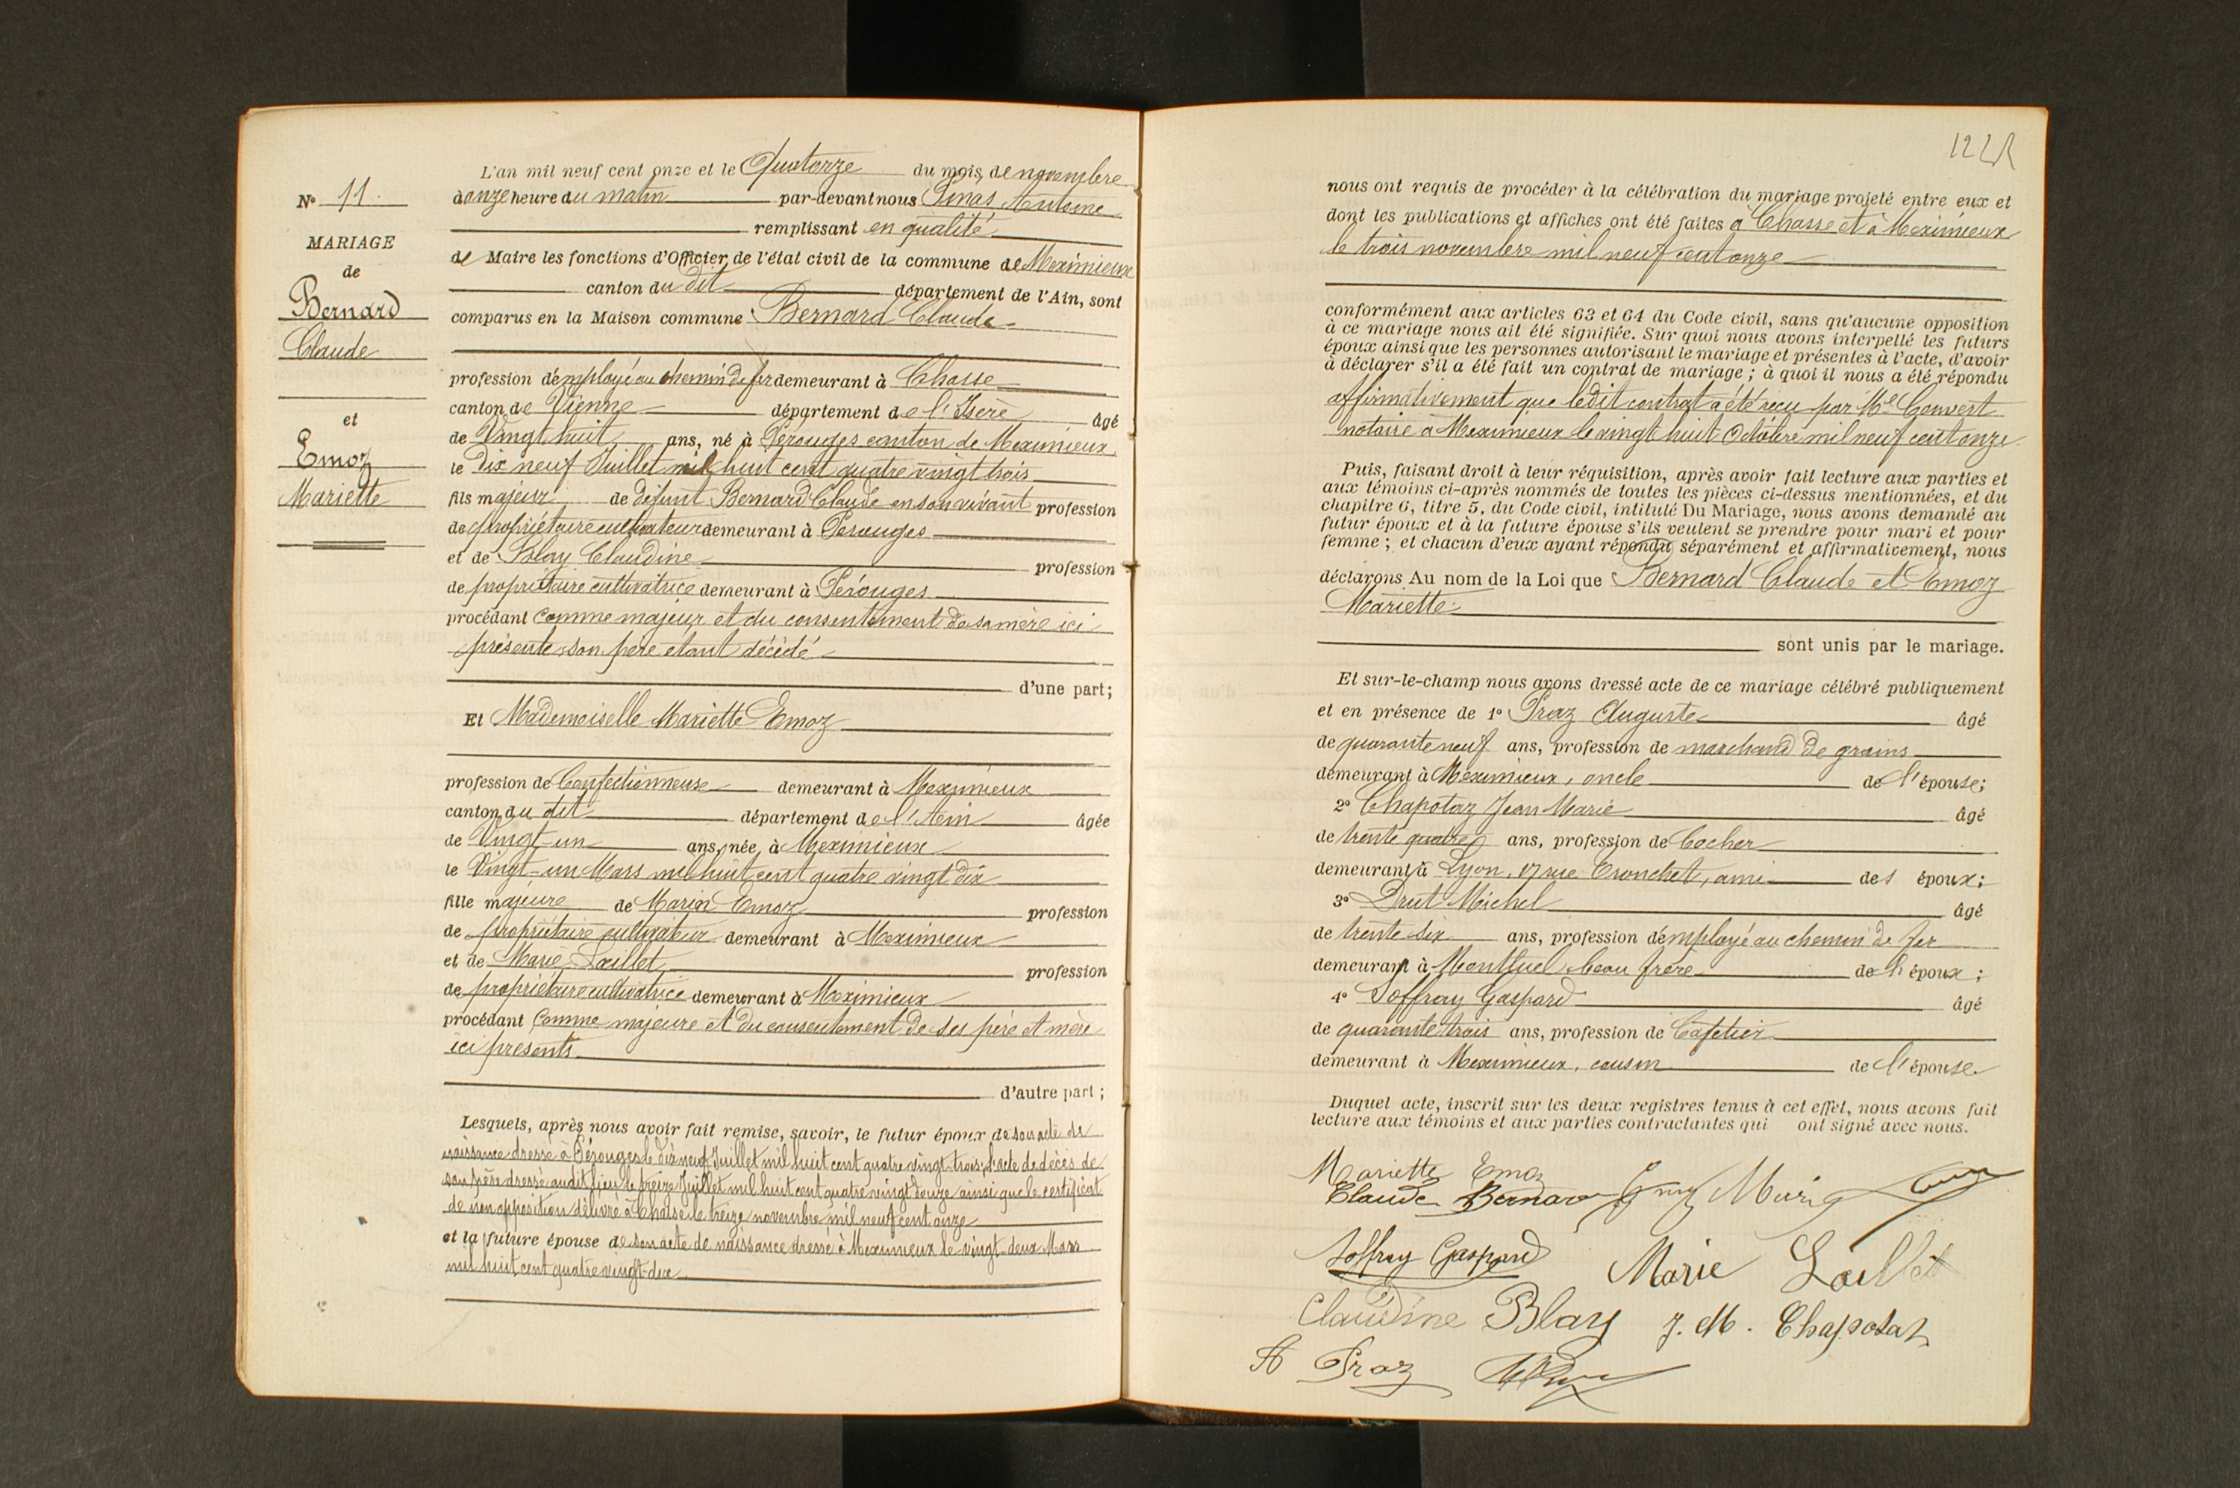 N° 11
MARIAGE
de
Bernard
Claude
et
Emoz
Mariette
L'an mil neuf cent onze et le Quatorze du mois de novembre
à onze heure du matin par-devant nous Antoine
remplissant en qualité
de Maire les fonctions d'Officier de l'état civil de la commune de Meximieux
canton du dit département de l'Ain, sont
comparus en la Maison commune Bernard Claude
profession d'employé au chemin de fer demeurant à Chasse
canton de Vienne département de l'Isère âgé
de Vingt huit ans, né à Pérouges canton de Meximieux
le Dix neuf Juillet mil huit cent quatre vingt trois
fils majeur de défunt Bernard Claude en son vivant profession
de propriétaire cultivateur demeurant à Perouges
et de Blay Claudine profession
de propriétaire cultivatrice demeurant à Pérouges
procédant comme majeur et du consentement de sa mère ici
présente, son père étant décédé
d'une part;
Et Mademoiselle Mariette Emoz
profession de Confectionneuse demeurant à Meximieux
canton du dit département de l'Ain âgée
de Vingt-un ans, née à Meximieux
le Vingt-un Mars mil huit cent quatre vingt dix
fille majeure de Marin Emoz profession
de propriétaire cultivateur demeurant à Meximieux
et de Marie Loillet profession
de propriétaire cultivatrice demeurant à Meximieux
procédant comme majeure et du consentement de ses père et mère
ici présents
d'autre part;
Lesquels, après nous avoir fait remise, savoir, le futur époux de son acte de
naissance dressé à Pérouges le dix neuf Juillet mil huit cent quatre vingt trois, l'acte de décès de
son père dressé audit lieu le treize Juillet mil huit cent quatre vingt douze ainsi que le certificat
de non opposition délivré à Chasse le treize novembre mil neuf cent onze
et la future épouse de son acte de naissance dressé à Meximieux le vingt-deux Mars
mil huit cent quatre vingt-dix
nous ont requis de procéder à la célébration du mariage projeté entre eux et
dont les publications et affiches ont été faites à Chasse et à Meximieux
le trois novembre mil neuf cent onze
conformément aux articles 63 et 64 du Code civil, sans qu'aucune opposition
à ce mariage nous ait été signifiée. Sur quoi nous avons interpellé les futurs
époux ainsi que les personnes autorisant le mariage et présentes à l'acte, d'avoir
à déclarer s'il a été fait un contrat de mariage; à quoi il nous a été répondu
affirmativement que le dit contrat a été reçu par Me Convert
notaire à Meximieux le vingt huit Octobre mil neuf cent onze
Puis, faisant droit à leur réquisition, après avoir fait lecture aux parties et
aux témoins ci-après nommés de toutes les pièces ci-dessus mentionnées, et du
chapitre 6, titre 5, du Code civil, intitulé Du Mariage, nous avons demandé au
futur époux et à la future épouse s'ils veulent se prendre pour mari et pour
femme; et chacun d'eux ayant répondu séparément et affirmativement, nous
déclarons Au nom de la Loi que Bernard Claude et Emoz
Mariette
sont unis par le mariage.
Et sur-le-champ nous avons dressé acte de ce mariage célébré publiquement
et en présence de 1° Praz Auguste âgé
de quarante neuf ans, profession de marchand de grains
demeurant à Meximieux, oncle de l'épouse;
2° Chapotaz Jean Marie âgé
de trente quatre ans, profession de Cocher
demeurant à Lyon, 17 rue Tronchet, ami des époux;
3° Drut Michel âgé
de trente six ans, profession d'employé au chemin de fer
demeurant à Montluel, beau frère de l'époux;
4° Joffray Gaspard âgé
de quarante trois ans, profession de Cafetier
demeurant à Meximieux, cousin de l'épouse
Duquel acte, inscrit sur les deux registres tenus à cet effet, nous avons fait
lecture aux témoins et aux parties contractantes qui ont signé avec nous.
Mariette Emoz
Claude Bernard Emoz Marin
Joffray Gaspard Marie Loillet
Claudine Blay J. M. Chapotaz
A Praz